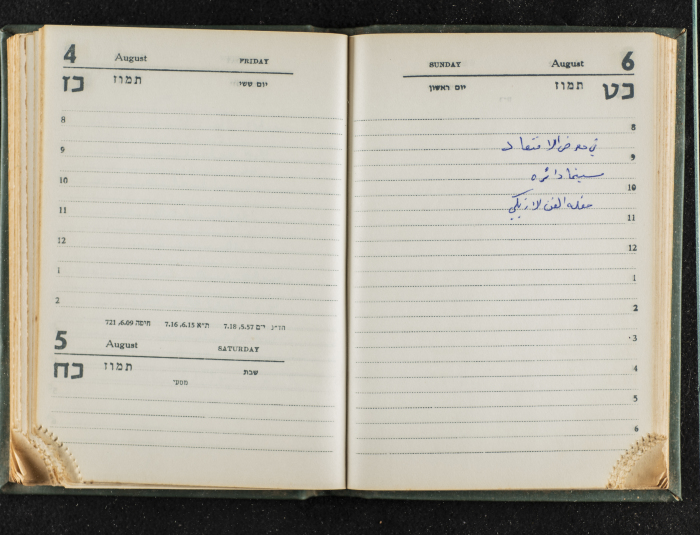 4 August FRIDAY
כז תמוז יום ששי
8
9
10
11
12
1
2
הד"נ י-ם 5.57, 7.18 ת"א 6.15, 7.16 חיפה 6.09, 721
5 August SATURDAY
כח תמוז שבת
מסעי
SUNDAY August 6
יום ראשון תמוז כט
8
في معرض الاقتصاد
9
سينما دائره
10
حفله الفن الازبكي
11
12
1
2
3
4
5
6